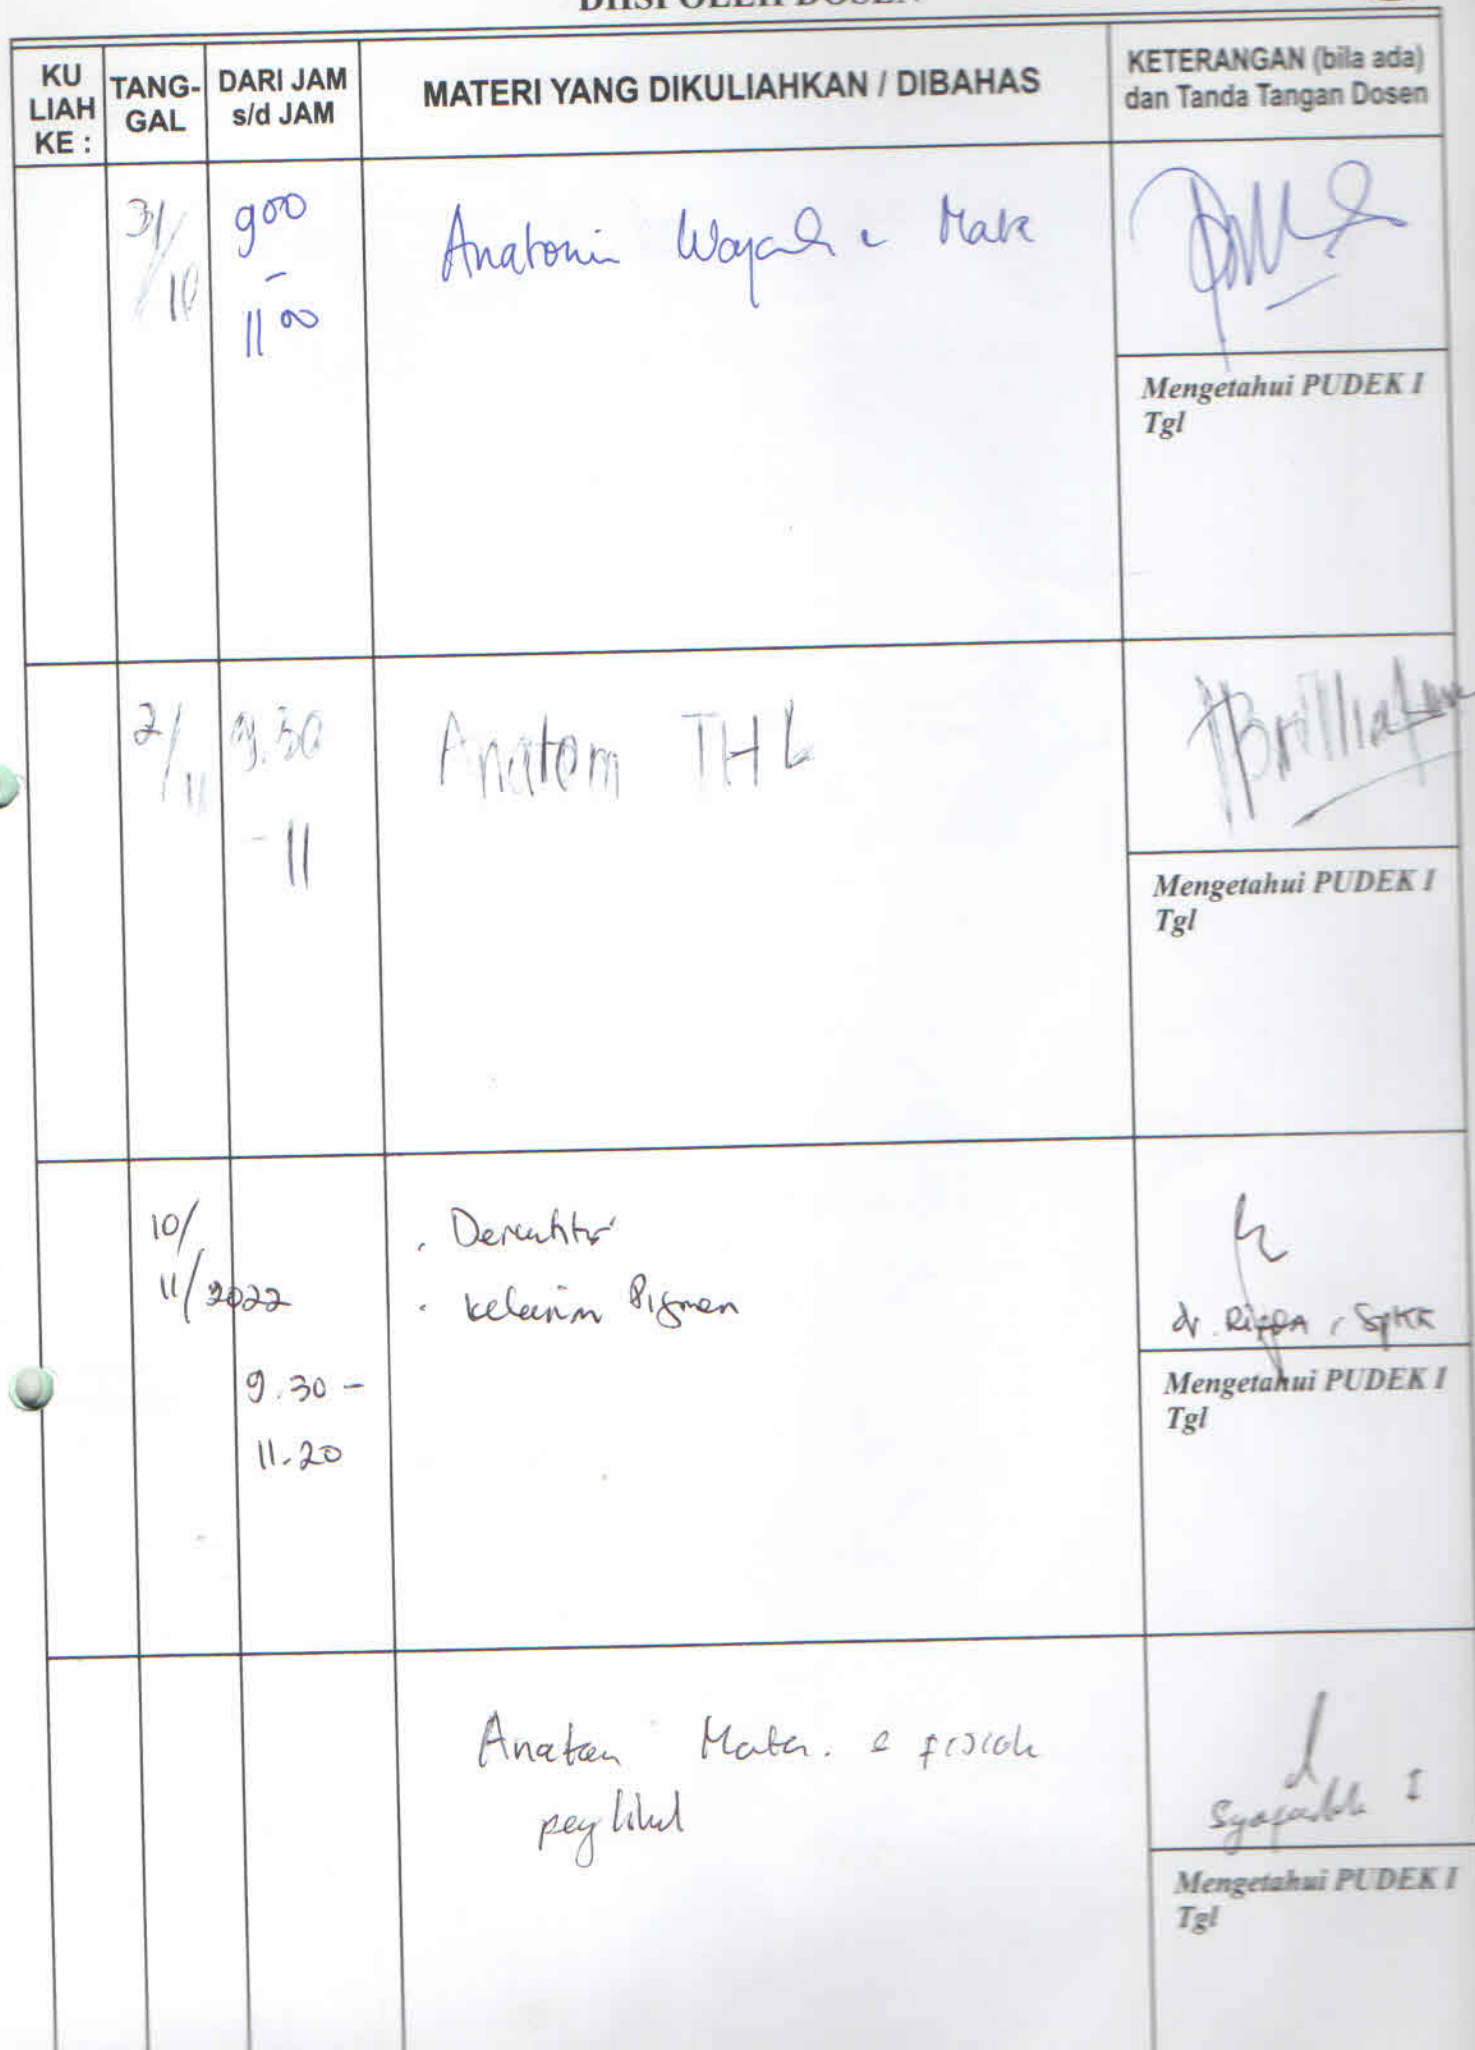 DIISI OLEH DOSEN
KU LIAH KE :
TANG-GAL
DARI JAM s/d JAM
MATERI YANG DIKULIAHKAN / DIBAHAS
KETERANGAN (bila ada) dan Tanda Tangan Dosen
31/10
9 00
-
11 00
Anatomi Wajah
Mengetahui PUDEK I
Tgl
2/11
9.30
- 11
Anatom THT
Mengetahui PUDEK I
Tgl
10/
11/2022
9.30 -
11.20
. Dermatitis
. Kelainan Pigmen
dr. , SpKK
Mengetahui PUDEK I
Tgl
Anatomi Mata.
Mengetahui PUDEK I
Tgl